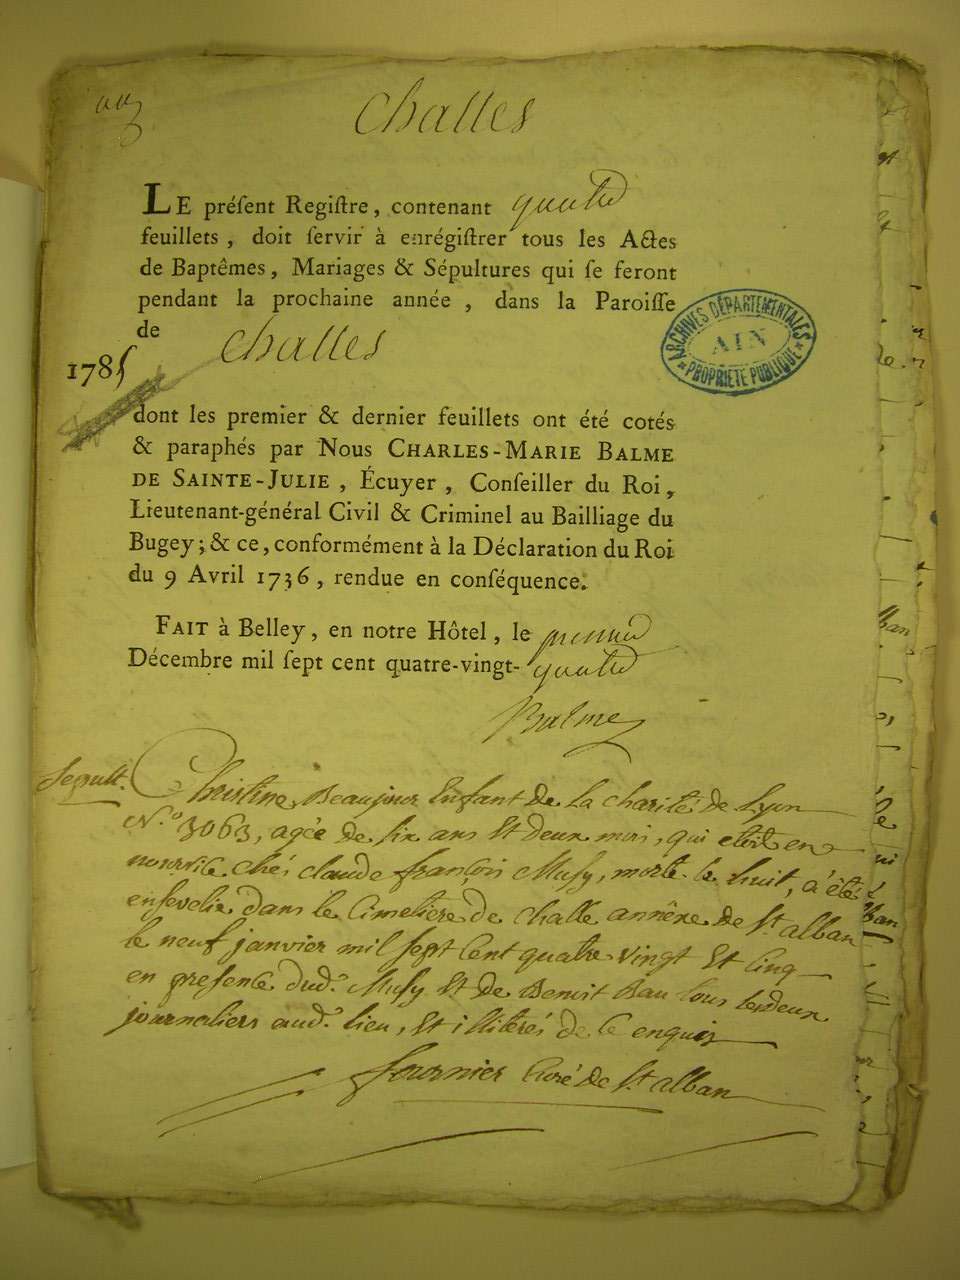 Challes
LE préſent Regiſtre, contenant quatre
feuillets, doit ſervir à enrégiſtrer tous les Actes
de Baptêmes, Mariages & Sépultures qui ſe feront
pendant la prochaine année, dans la Paroiſſe
de Challes
ARCHIVES DÉPARTEMENTALES
AIN
* PROPRIÉTÉ PUBLIQUE *
1785
dont les premier & dernier feuillets ont été cotés
& paraphés par Nous CHARLES-MARIE BALME
DE SAINTE-JULIE, Écuyer, Conſeiller du Roi,
Lieutenant-général Civil & Criminel au Bailliage du
Bugey; & ce, conformément à la Déclaration du Roi
du 9 Avril 1736, rendue en conſéquence.
FAIT à Belley, en notre Hôtel, le premier
Décembre mil ſept cent quatre-vingt-quatre
Balme
Sepult. Christine Beaujour Enfant de la charité de Lyon
N.º 3063, agée de six ans et deux mois, qui etoit en
nourrice chés claude françois Musy, morte le huit, a été
ensevelie dans le Cimetiere de challe annéxe de St alban
le neuf janvier mil sept cent quatre vingt et cinq
en presence dud. Musy et de Benoit Bau tous les deux
journaliers aud. lieu, et illiterés de ce enquis
fournier Curé de St alban